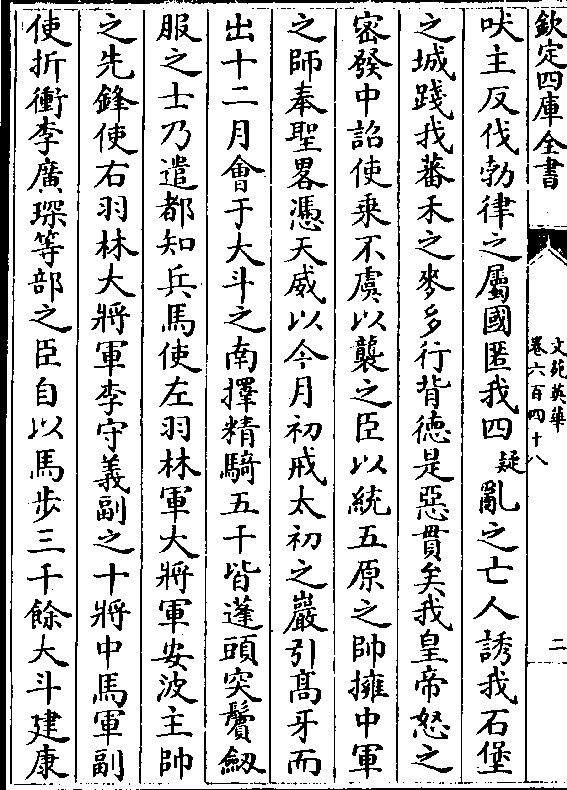 欽定四庫全書
文苑英華
卷六百四十八
二
吠主反伐勃律之屬國匿我四疑亂之亡人誘我石堡
之城踐我蕃禾之麥多行背德是惡貫矣我皇帝怒之
密發中詔使乘不虞以襲之臣以統五原之帥擁中軍
之師奉聖畧憑天威以今月初戒太初之嚴引髙牙而
出十二月會于大斗之南擇精騎五千皆蓬頭突鬢劔
服之士乃遣都知兵馬使左羽林軍大將軍安波主帥
之先鋒使右羽林大將軍李守義副之十將中馬軍副
使折衝李廣琛等部之臣自以馬步三千餘大斗建康